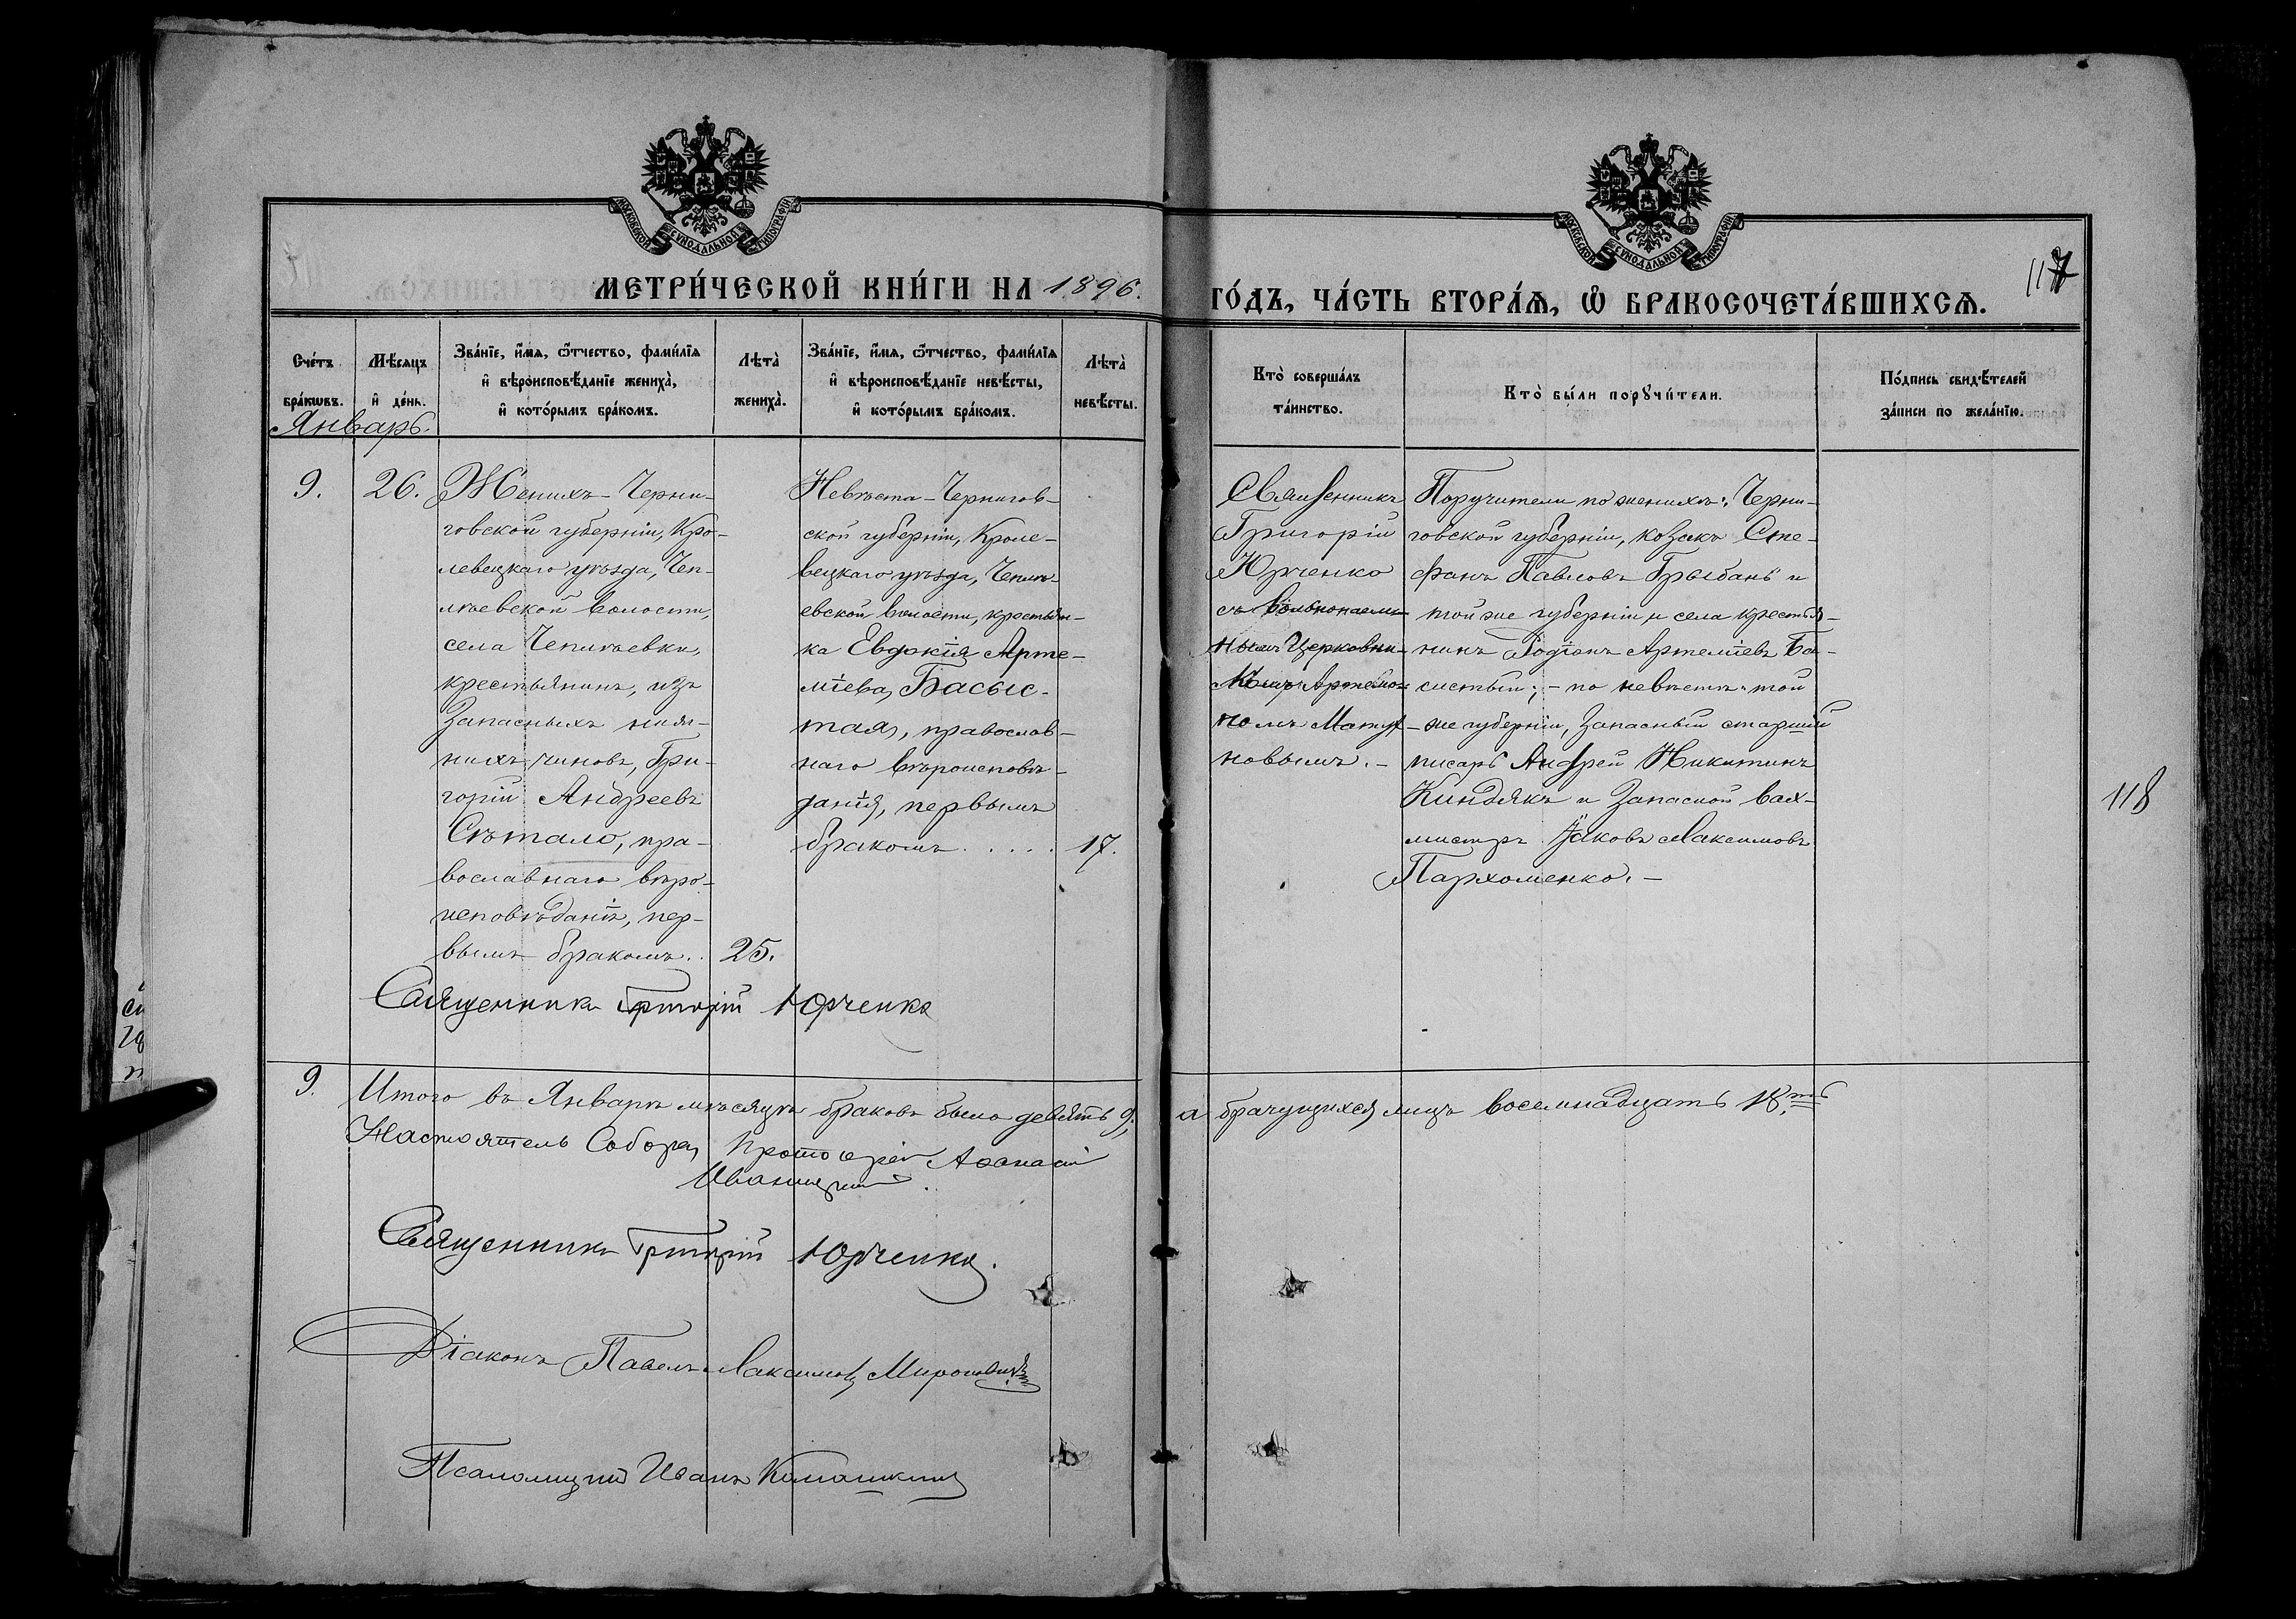 МОСКОВСКОЙ СѴНОДАЛЬНОЙ ТИПОГРАФІИ
МОСКОВСКОЙ СѴНОДАЛЬНОЙ ТИПОГРАФІИ
МЕТРИ́ЧЕСКОЙ КНИ́ГИ НА 1896.
ГО́ДЪ, ЧА́СТЬ ВТОРА́Ѧ, Ѡ҆ БРАКОСОЧЕТА́ВШИХСѦ.
117
Сче́тъ бра́кѡвъ.
Мѣ́сѧцъ и҆ де́нь.
Зва́нїе, и҆́мѧ, ѻ҆́тчество, фами́лїѧ
и҆ вѣроисповѣ́данїе жениха̀,
и҆ кото́рымъ бра́комъ.
Лѣта̀ жениха̀.
Зва́нїе, и҆́мѧ, ѻ҆́тчество, фами́лїѧ
и҆ вѣроисповѣ́данїе невѣ́сты,
и҆ кото́рымъ бра́комъ.
Лѣта̀ невѣ́сты.
Кто̀ соверша́лъ
та́инство.
Кто̀ бы́ли порꙋчи́тели.
По́дпись свидѣ́телей
за́писи по жела́нїю.
Январь.
9.
26.
Женихъ - Черни-
говской губерніи, Кро-
левецкаго уѣзда, Чеп-
лѣевской волости,
села Чеплѣевки,
крестьянинъ, изъ
запасныхъ ниж-
нихъ чиновъ, Гри-
горій Андреевъ
Сѣтало, пра-
вославнаго вѣро-
исповѣданія, пер-
вымъ бракомъ. .
25.
Невѣста - Чернигов-
ской губерніи, Кроле-
вецкаго уѣзда, Чеплѣ-
евской волости, крестьян-
ка Евдокія Арте-
міева, Басыс-
тая, православ-
наго вѣроисповѣ-
данія, первымъ
бракомъ . . . . .
17.
Священникъ
Григорій
Юрченко
съ вольнонаем-
нымъ Церковни-
комъ Артемо-
номъ
новымъ. -
Поручители по женихѣ: Черни-
говской губерніи, козакъ Сте-
фанъ Павловъ Грыбань и
той же губерніи и села крестья-
нинъ Родіонъ Артеміевъ Ба-
систый; - по невѣстѣ: той
же губерніи, запасный старшій
писарь Андрей Никитинъ
Киндякъ и запасной вах-
мистръ Яковъ Максимовъ
Пархоменко. -
118
Священникъ Григорій Юрченко
9.
Итого въ Январѣ мѣсяцѣ браковъ было девять 9, а брачущихся лицъ восемнадцать 18.ть
Настоятель Собора, Протоіерей Аѳанасій
Священникъ Григорій Юрченко.
Діаконъ Павелъ Максимовъ Мироновичъ
Псаломщикъ Иванъ